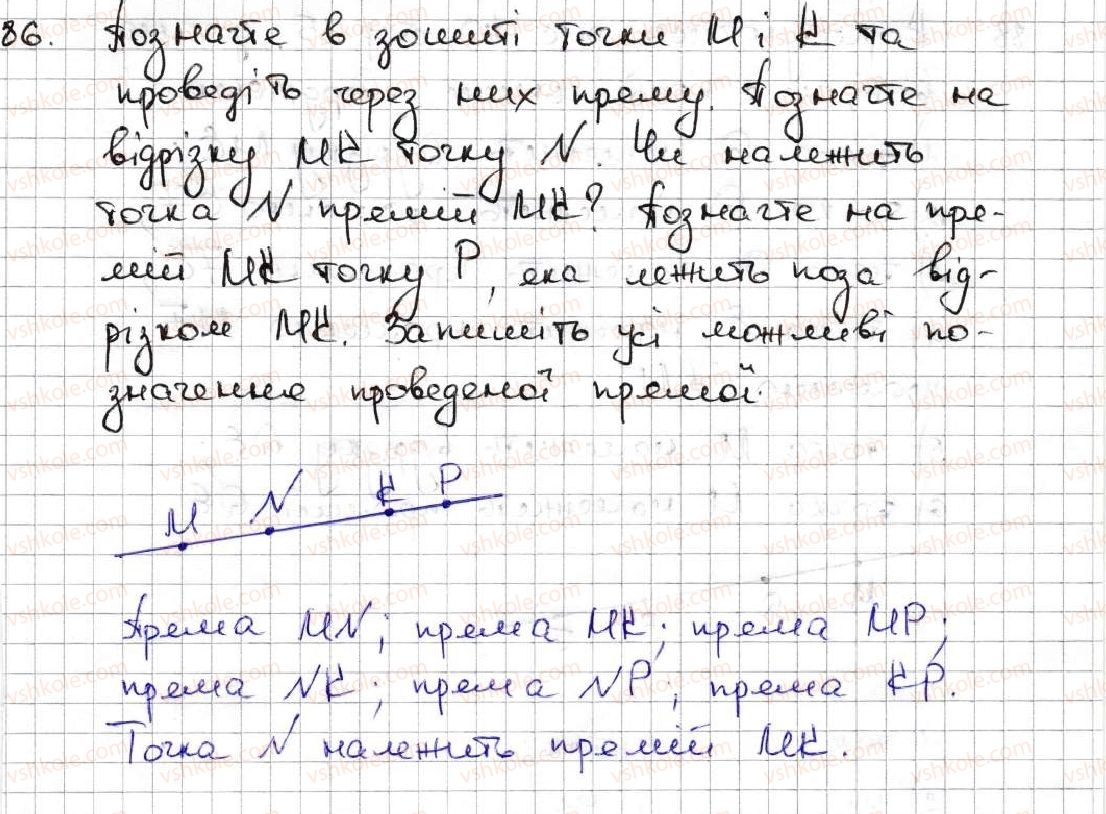 86. Позначте в зошиті точки М і К та
проведіть через них пряму. Позначте на
відрізку МК точку N. Чи належить
точка N прямій МК? Позначте на пря-
мій МК точку Р, яка лежить поза від-
різком МК. Запишіть усі можливі по-
значення проведеної прямої.
M N K P
Пряма MN; пряма МК; пряма МР;
пряма NK; пряма NP; пряма КР.
Точка N належить прямій МК.
vshkole.com